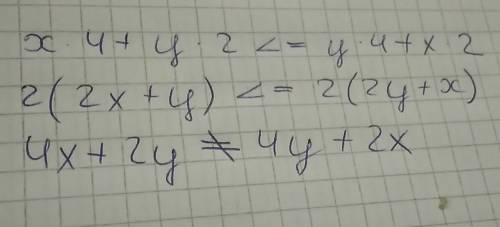 x · 4 + y · 2 <= y · 4 + x · 2
2(2x + y) <= 2(2y + x)
4x + 2y ≠ 4y + 2x